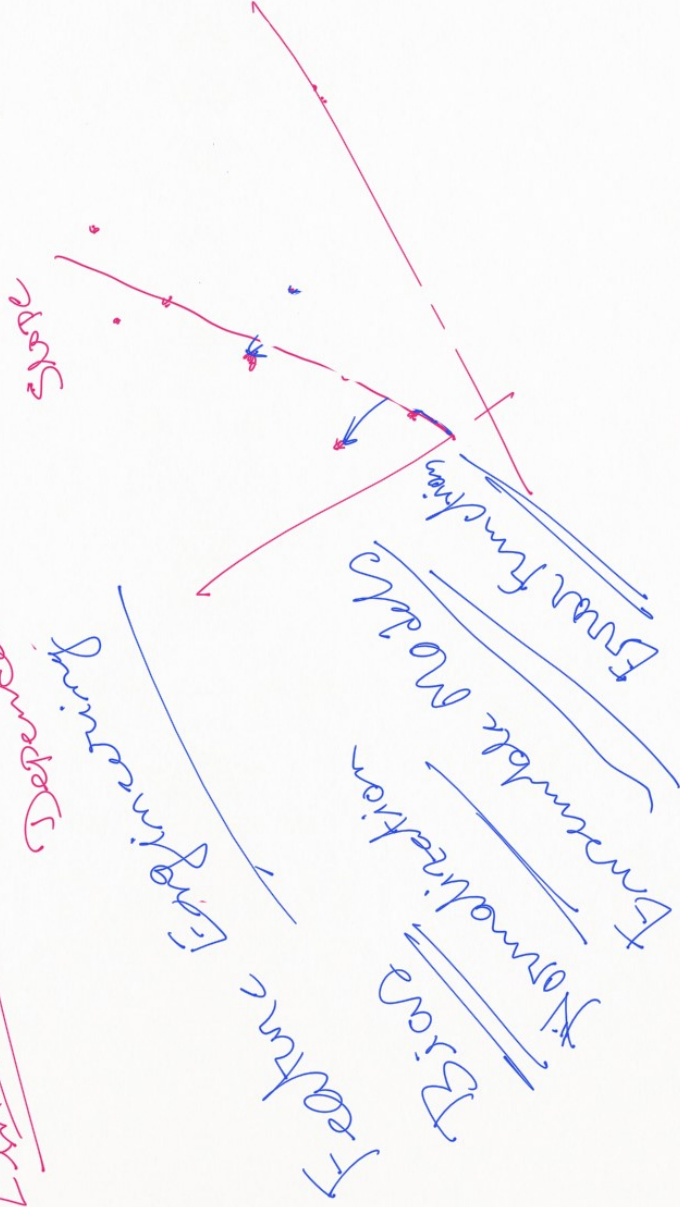 Error Function
Ensemble Models
Normalization
Bias
Feature Engineering
Slope